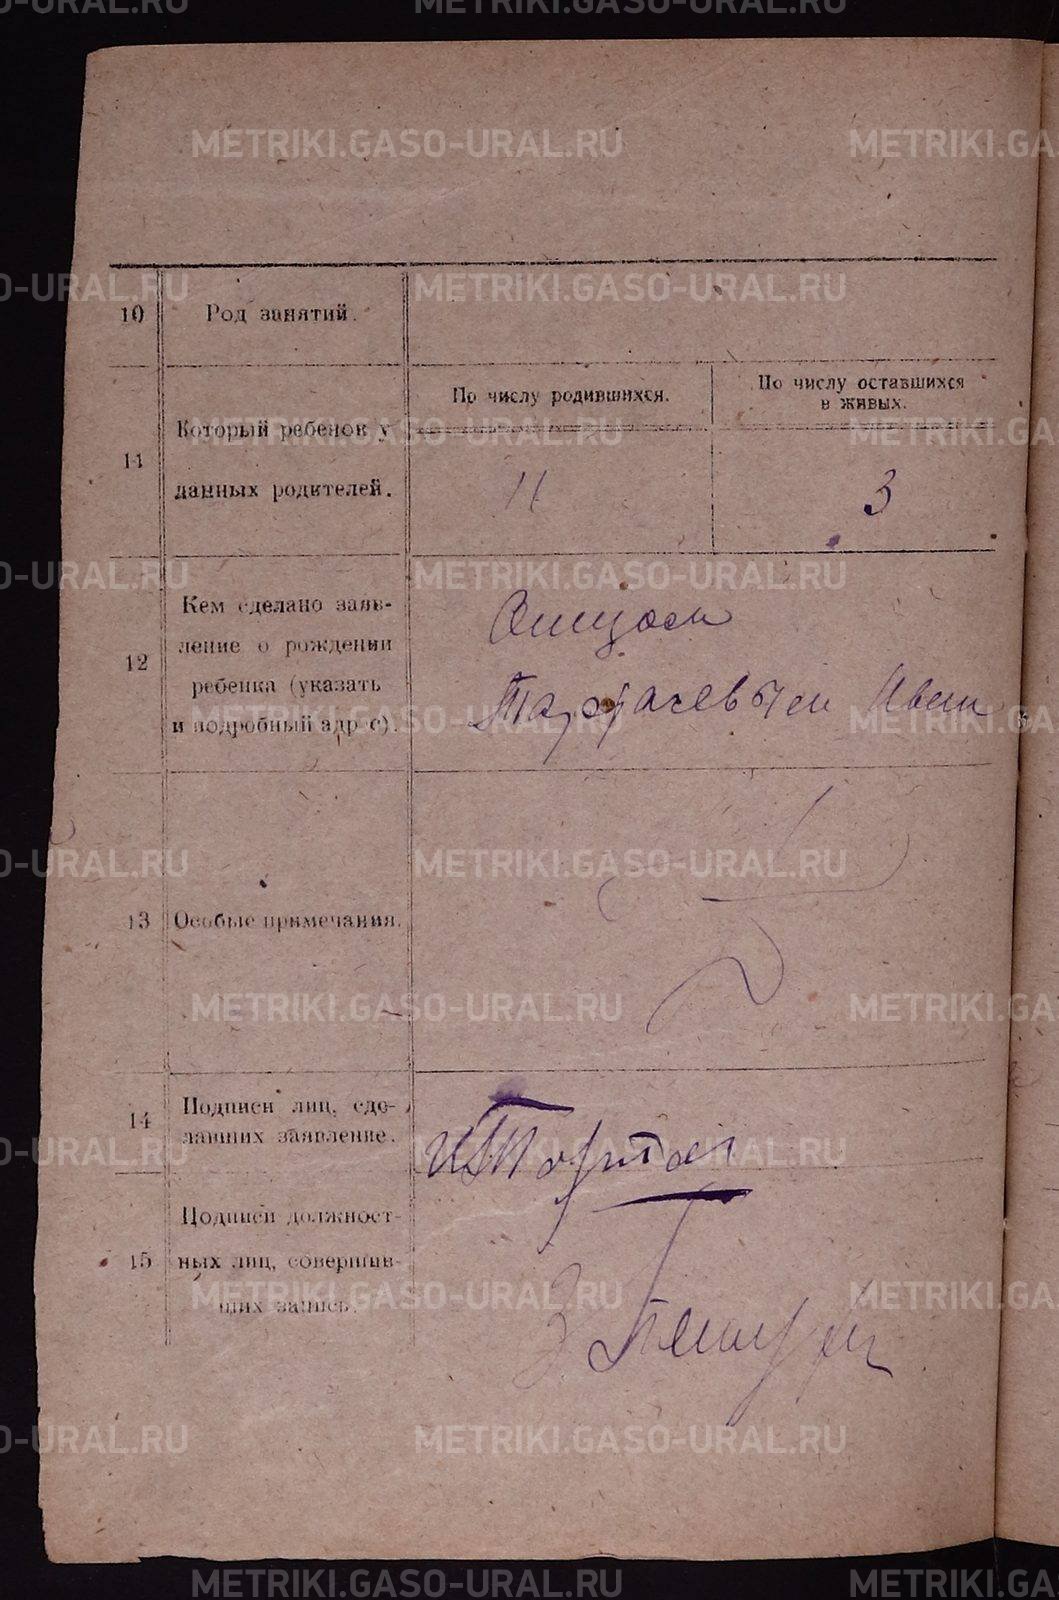 METRIKI.GASO-URAL.RU
10 Род занятий.
11 Который ребенок у данных родителей.
По числу родившихся.
По числу оставшихся
в живых.
11
3
12 Кем сделано заяв-
ление о рождении
ребенка (указать
и подробный адрес).
Отцом
Иван
13 Особые примечания.
14 Подписи лиц, сде-
лавших заявление.
15 Подписи должност-
ных лиц, совершив-
ших запись.